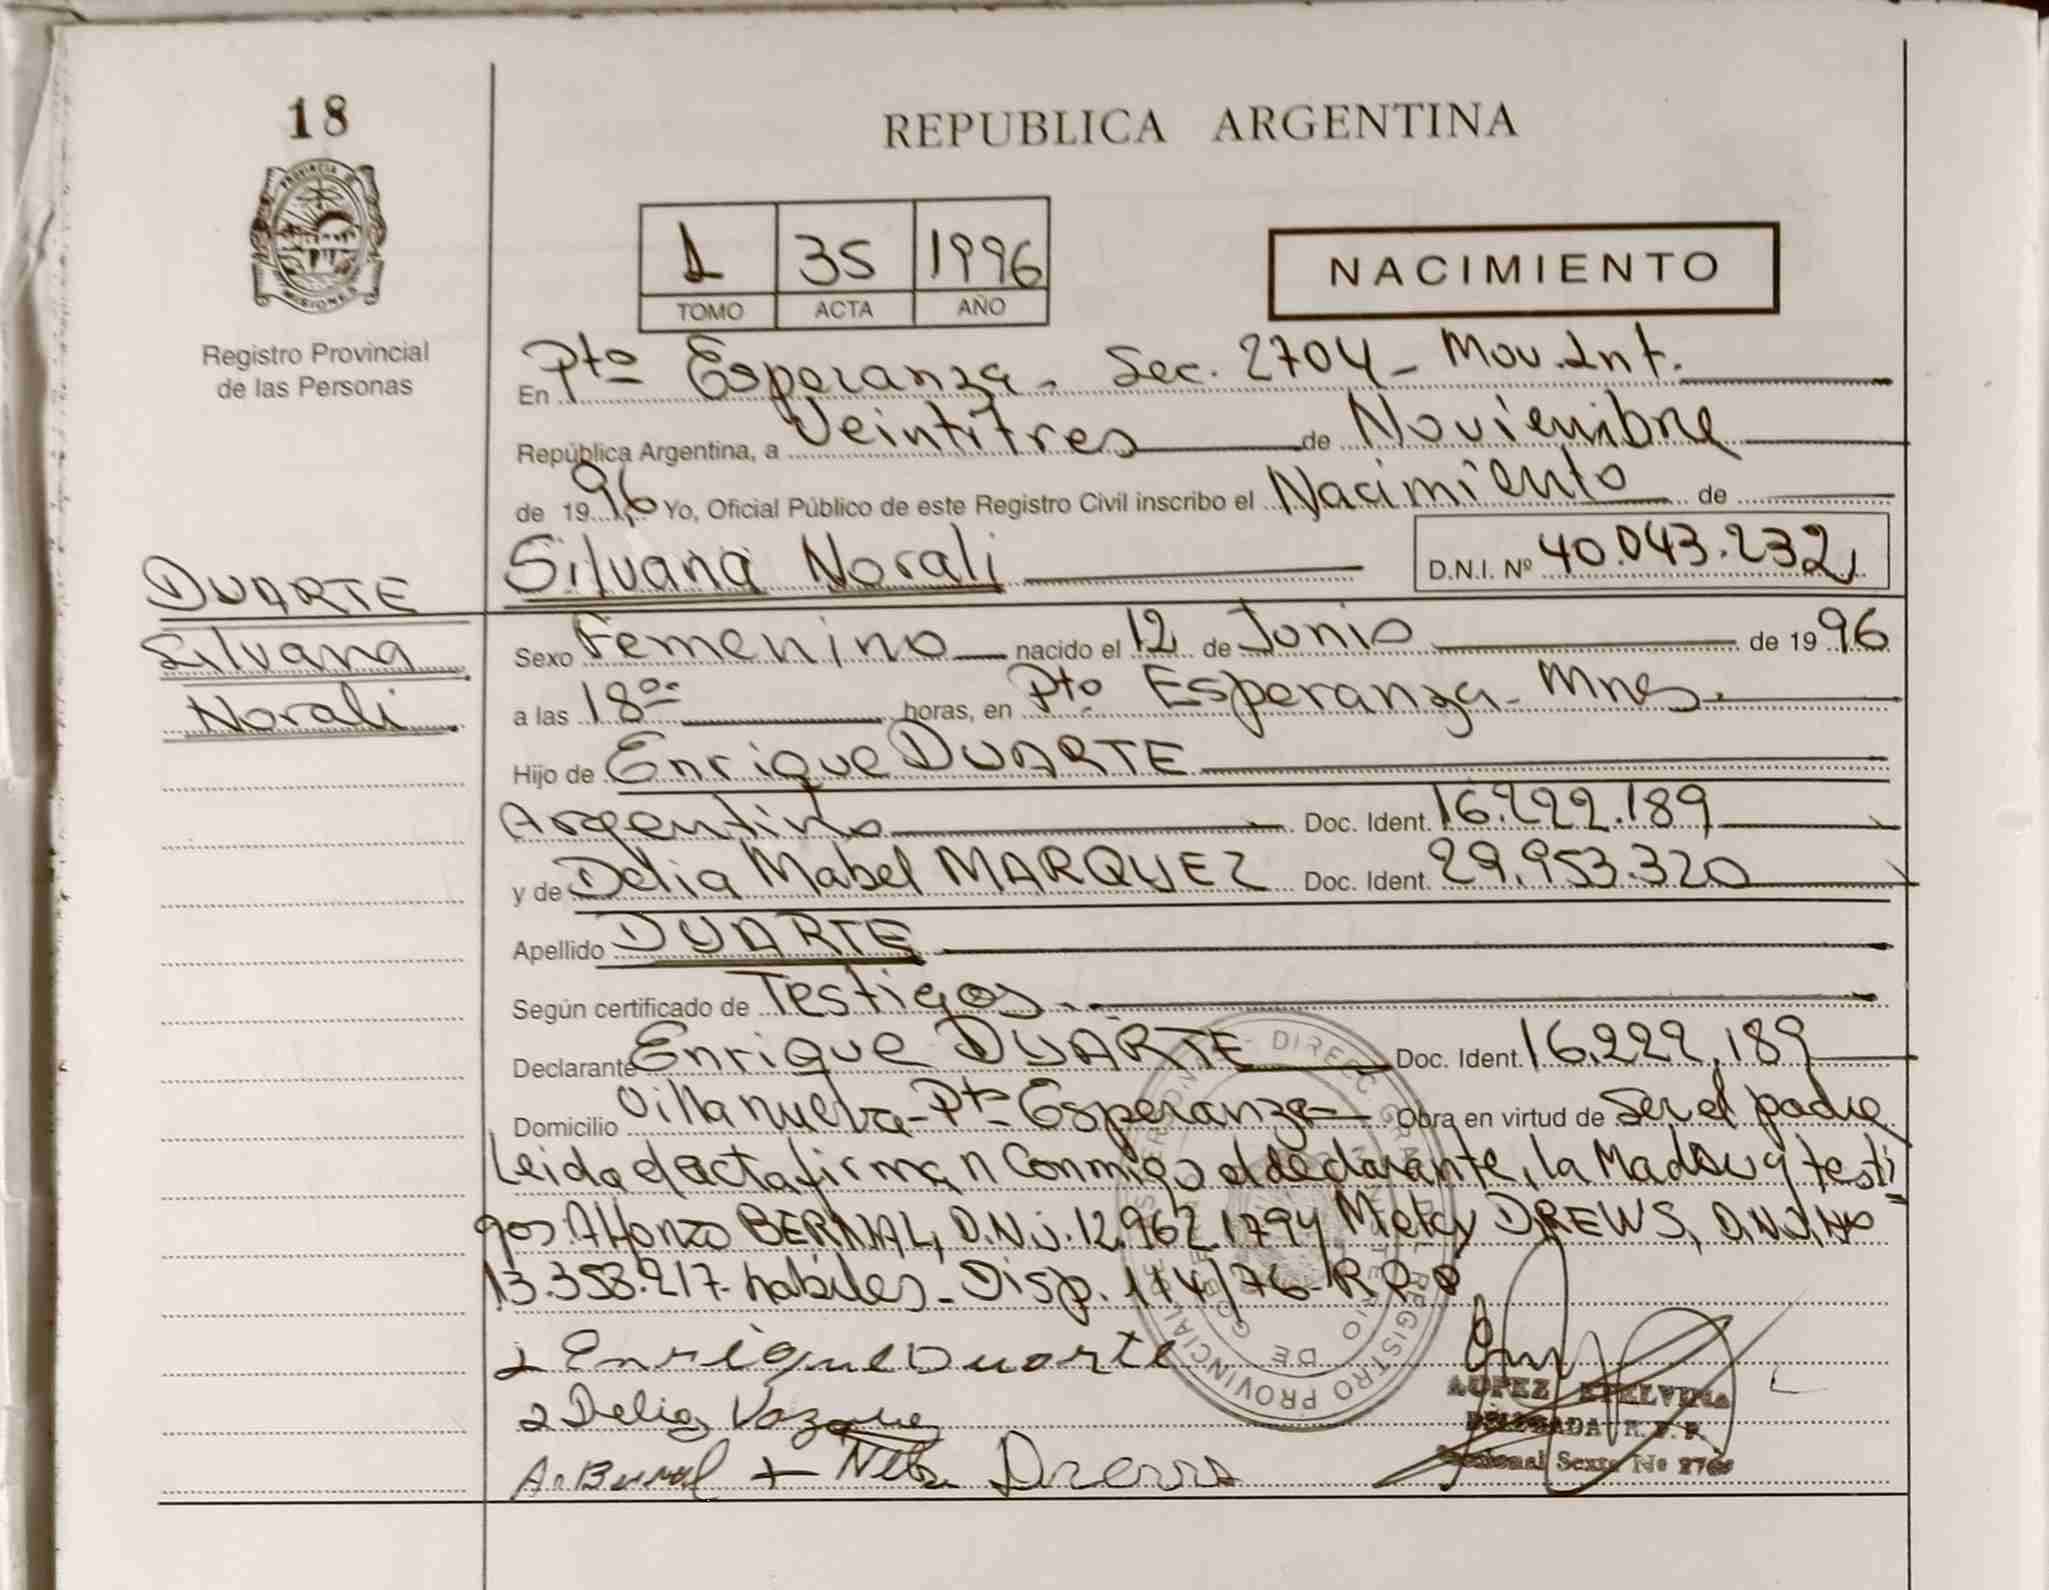 18
REPUBLICA ARGENTINA
PROVINCIA DE MISIONES
Registro Provincial
de las Personas
1 35 1996
TOMO ACTA AÑO
NACIMIENTO
En Pto Esperanza - Sec. 2704 - Mov. Int.
República Argentina, a Veintitres de Noviembre
de 1996 Yo, Oficial Público de este Registro Civil inscribo el Nacimiento de
Silvana Norali D.N.I. Nº 40.043.232
DUARTE
Silvana
Norali
Sexo Femenino nacido el 12 de Junio de 1996
a las 18oo horas, en Pto Esperanza - Mnes.
Hijo de Enrique DUARTE
Argentino Doc. Ident. 16.222.189
y de Delia Mabel MARQUEZ Doc. Ident. 29.953.320
Apellido DUARTE
Según certificado de Testigos.
Declarante Enrique DUARTE Doc. Ident. 16.222.189
Domicilio Villa nueva - Pto Esperanza Obra en virtud de Ser el padre
Leida el acta firman Conmigo el declarante, la Madre y testi
gos: Alfonzo BERNAL, D.N.i. 12.962.179 y DREWS, D.N.I. No
13.358.217. habiles - Disp. 114/76 - R.P.P
Enrique Duarte
Delia
DIREC. GRAL. REGISTRO PROVINCIAL
DE
Drews
LOPEZ ETELVINA
DELEGADA R. P. P.